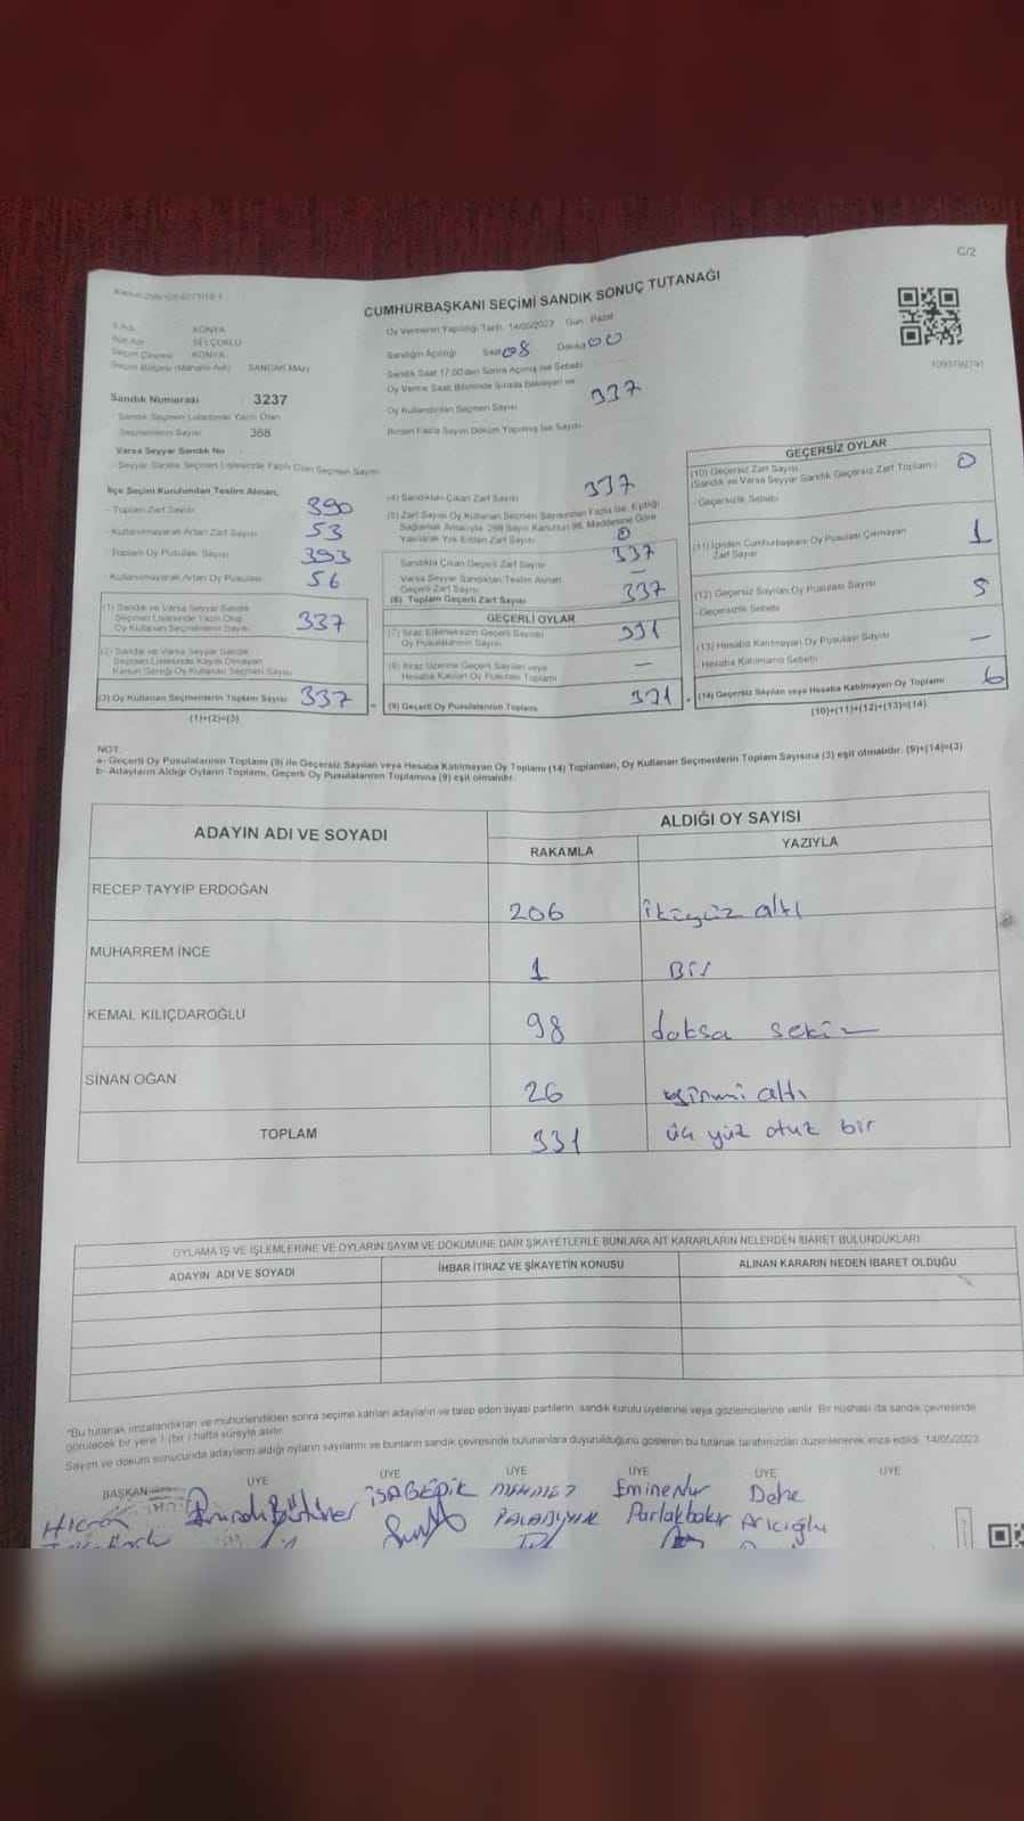 C/2
CUMHURBAŞKANI SEÇİMİ SANDIK SONUÇ TUTANAĞI
Oy Vermenin Yapıldığı Tarih: 14/05/2023 Gün: Pazar
KONYA
SELÇUKLU
KONYA
SANCAK MAH.
Sandığın Açılışı Saat 08 Dakika 00
Sandık Saat 17.00'den Sonra Açılmış ise Sebebi
Oy Verme Saati Bitiminde Sırada Bekleyen ve
Oy Kullandırılan Seçmen Sayısı 337
Birden Fazla Sayım Döküm Yapılmış İse Sayısı
Sandık Numarası 3237
Sandık Seçmen Listesinde Yazılı Olan
Seçmenlerin Sayısı 368
Varsa Seyyar Sandık No
Seyyar Sandık Seçmen Listesinde Yazılı Olan Seçmen Sayısı
İlçe Seçim Kurulundan Teslim Alınan;
- Toplam Zarf Sayısı 390
- Kullanılmayarak Artan Zarf Sayısı 53
- Toplam Oy Pusulası Sayısı 393
- Kullanılmayarak Artan Oy Pusulası 56
(1) Sandık ve Varsa Seyyar Sandık
Seçmen Listesinde Yazılı Olup
Oy Kullanan Seçmenlerin Sayısı 337
(2) Sandık ve Varsa Seyyar Sandık
Seçmen Listesinde Kaydı Olmayan
Kanun Gereği Oy Kullanan Seçmen Sayısı
(3) Oy Kullanan Seçmenlerin Toplam Sayısı 337
(1)+(2)=(3)
(4) Sandıktan Çıkan Zarf Sayısı 337
(5) Zarf Sayısı Oy Kullanan Seçmen Sayısından Fazla İse, Eşitliği
Sağlamak Amacıyla 298 Sayılı Kanunun 98. Maddesine Göre
Yakılarak Yok Edilen Zarf Sayısı 0
Sandıkta Çıkan Geçerli Zarf Sayısı 337
Varsa Seyyar Sandıktan Teslim Alınan
Geçerli Zarf Sayısı —
(6) Toplam Geçerli Zarf Sayısı 337
GEÇERLİ OYLAR
(7) İtiraz Edilmeksizin Geçerli Sayılan
Oy Pusulalarının Sayısı 331
(8) İtiraz Üzerine Geçerli Sayılan veya
Hesaba Katılan Oy Pusulası Toplamı —
(9) Geçerli Oy Pusulalarının Toplamı 331
GEÇERSİZ OYLAR
(10) Geçersiz Zarf Sayısı
(Sandık ve Varsa Seyyar Sandık Geçersiz Zarf Toplamı) 0
- Geçersizlik Sebebi
(11) İçinden Cumhurbaşkanı Oy Pusulası Çıkmayan
Zarf Sayısı 1
(12) Geçersiz Sayılan Oy Pusulası Sayısı 5
- Geçersizlik Sebebi
(13) Hesaba Katılmayan Oy Pusulası Sayısı —
Hesaba Katılmama Sebebi
(14) Geçersiz Sayılan veya Hesaba Katılmayan Oy Toplamı 6
(10)+(11)+(12)+(13)=(14)
NOT:
a- Geçerli Oy Pusulalarının Toplamı (9) ile Geçersiz Sayılan veya Hesaba Katılmayan Oy Toplamı (14) Toplamları, Oy Kullanan Seçmenlerin Toplam Sayısına (3) eşit olmalıdır. (9)+(14)=(3)
b- Adayların Aldığı Oyların Toplamı, Geçerli Oy Pusulalarının Toplamına (9) eşit olmalıdır.
ADAYIN ADI VE SOYADI
ALDIĞI OY SAYISI
RAKAMLA YAZIYLA
RECEP TAYYIP ERDOĞAN 206 ikiyüz altı
MUHARREM İNCE 1 Bir
KEMAL KILIÇDAROĞLU 98 doksa sekiz
SİNAN OĞAN 26 yirmi altı
TOPLAM 331 üç yüz otuz bir
OYLAMA İŞ VE İŞLEMLERİNE VE OYLARIN SAYIM VE DÖKÜMÜNE DAİR ŞİKAYETLERLE BUNLARA AİT KARARLARIN NELERDEN İBARET BULUNDUKLARI
ADAYIN ADI VE SOYADI İHBAR İTİRAZ VE ŞİKAYETİN KONUSU ALINAN KARARIN NEDEN İBARET OLDUĞU
"Bu tutanak imzalandıktan ve mühürlendikten sonra seçime katılan adayların ve talep eden siyasi partilerin, sandık kurulu üyelerine veya gözlemcilerine verilir. Bir nüshası da sandık çevresinde
görülecek bir yere 1 (bir) hafta süreyle asılır.
Sayım ve döküm sonucunda adayların aldığı oyların sayılarını ve bunların sandık çevresinde bulunanlara duyurulduğunu gösteren bu tutanak tarafımızdan düzenlenerek imza edildi. 14/05/2023
BAŞKAN ÜYE ÜYE ÜYE ÜYE ÜYE ÜYE
İSA GEDİK MEHMET Eminenur Defne
Parlakbakır Arıcıoğlu